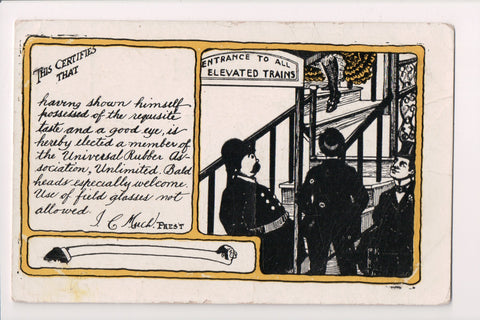 THIS CERTIFIES
THAT
having shown himself
possessed of the requisite
taste and a good eye, is
hereby elected a member of
the Universal Rubber As-
sociation, Unlimited. Bald
heads especially welcome.
Use of field glasses not
allowed.
I. C. Much, PREST
ENTRANCE TO ALL
ELEVATED TRAINS